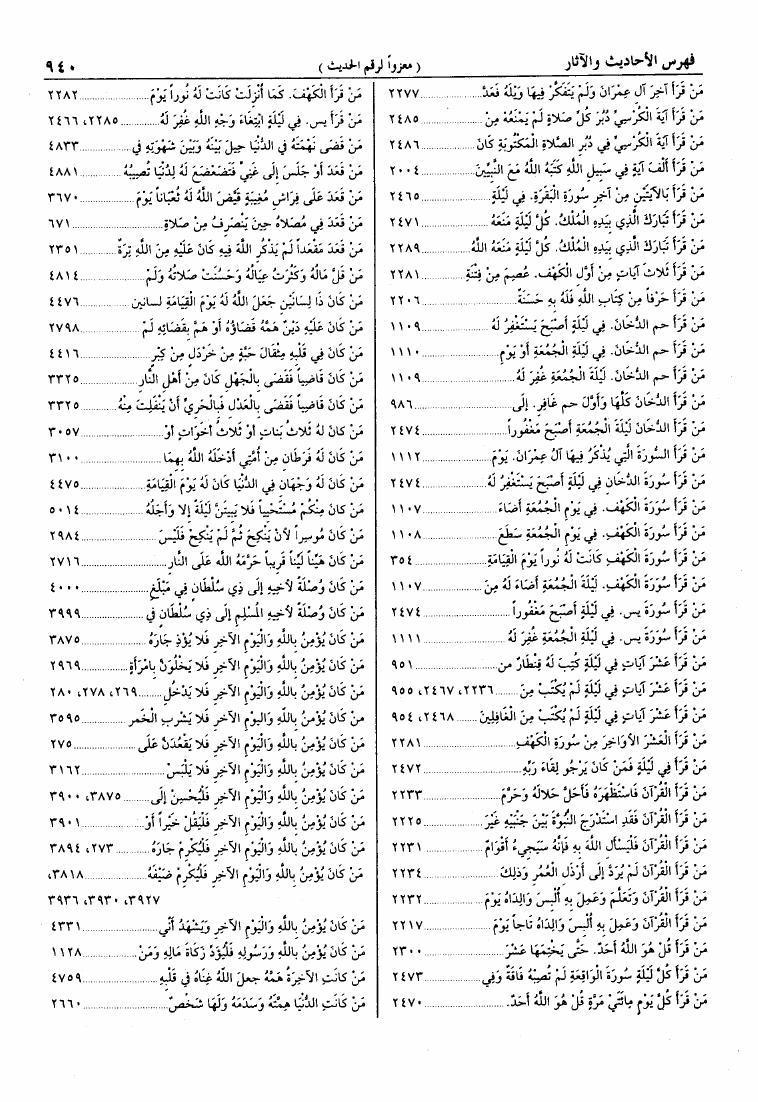 فهرس الأحاديث والآثار
( معزواً لرقم الحديث )
٩٤٠
مَنْ قَرَأَ آخِرَ آلِ عِمْرَانَ وَلَمْ يَتَفَكَّرْ فِيهَا وَيْلَهُ فَعَدَّ ٢٢٧٧
مَنْ قَرَأَ آيَةَ الْكُرْسِيِّ دُبُرَ كُلِّ صَلَاةٍ لَمْ يَمْنَعْهُ مِنْ ٢٤٨٥
مَنْ قَرَأَ آيَةَ الْكُرْسِيِّ فِي دُبُرِ الصَّلَاةِ الْمَكْتُوبَةِ كَانَ ٢٤٨٦
مَنْ قَرَأَ أَلْفَ آيَةٍ فِي سَبِيلِ اللَّهِ كَتَبَهُ اللَّهُ مَعَ النَّبِيِّينَ ٢٠٠٤
مَنْ قَرَأَ بِالْآيَتَيْنِ مِنْ آخِرِ سُورَةِ الْبَقَرَةِ. فِي لَيْلَةٍ ٢٤٦٥
مَنْ قَرَأَ تَبَارَكَ الَّذِي بِيَدِهِ الْمُلْكُ. كُلَّ لَيْلَةٍ مَنَعَهُ ٢٤٧١
مَنْ قَرَأَ تَبَارَكَ الَّذِي بِيَدِهِ الْمُلْكُ. كُلَّ لَيْلَةٍ مَنَعَهُ اللَّهُ ٢٢٨٩
مَنْ قَرَأَ ثَلَاثَ آيَاتٍ مِنْ أَوَّلِ الْكَهْفِ. عُصِمَ مِنْ فِتْنَةِ ٢٢٨١
مَنْ قَرَأَ حَرْفاً مِنْ كِتَابِ اللَّهِ فَلَهُ بِهِ حَسَنَةٌ ٢٢٠٦
مَنْ قَرَأَ حم الدُّخَانَ. فِي لَيْلَةٍ أَصْبَحَ يَسْتَغْفِرُ لَهُ ١١٠٩
مَنْ قَرَأَ حم الدُّخَانَ. فِي لَيْلَةِ الْجُمُعَةِ أَوْ يَوْمِ ١١١٠
مَنْ قَرَأَ حم الدُّخَانَ. لَيْلَةَ الْجُمُعَةِ غُفِرَ لَهُ ١١٠٩
مَنْ قَرَأَ الدُّخَانَ كُلَّهَا وَأَوَّلَ حم غَافِرِ. إِلَى ٩٨٦
مَنْ قَرَأَ الدُّخَانَ لَيْلَةَ الْجُمُعَةِ أَصْبَحَ مَغْفُوراً ٢٤٧٤
مَنْ قَرَأَ السُّورَةَ الَّتِي يُذْكَرُ فِيهَا آلُ عِمْرَانَ. يَوْمَ ١١١٢
مَنْ قَرَأَ سُورَةَ الدُّخَانِ فِي لَيْلَةٍ أَصْبَحَ يَسْتَغْفِرُ لَهُ ٢٤٧٤
مَنْ قَرَأَ سُورَةَ الْكَهْفِ. فِي يَوْمِ الْجُمُعَةِ أَضَاءَ ١١٠٧
مَنْ قَرَأَ سُورَةَ الْكَهْفِ. فِي يَوْمِ الْجُمُعَةِ سَطَعَ ١١٠٨
مَنْ قَرَأَ سُورَةَ الْكَهْفِ كَانَتْ لَهُ نُوراً يَوْمَ الْقِيَامَةِ ٣٥٤
مَنْ قَرَأَ سُورَةَ الْكَهْفِ. لَيْلَةَ الْجُمُعَةِ أَضَاءَ لَهُ مِنَ ١١٠٧
مَنْ قَرَأَ سُورَةَ يس. فِي لَيْلَةٍ أَصْبَحَ مَغْفُوراً ٢٤٧٤
مَنْ قَرَأَ سُورَةَ يس. فِي لَيْلَةِ الْجُمُعَةِ غُفِرَ لَهُ ١١١١
مَنْ قَرَأَ عَشْرَ آيَاتٍ فِي لَيْلَةٍ كُتِبَ لَهُ قِنْطَارٌ من ٩٥١
مَنْ قَرَأَ عَشْرَ آيَاتٍ فِي لَيْلَةٍ لَمْ يُكْتَبْ مِنَ ٢٢٣٦، ٢٤٦٧، ٩٥٥
مَنْ قَرَأَ عَشْرَ آيَاتٍ فِي لَيْلَةٍ لَمْ يُكْتَبْ مِنَ الْغَافِلِينَ ٢٤٦٨، ٩٥٤
مَنْ قَرَأَ الْعَشْرَ الْأَوَاخِرَ مِنْ سُورَةِ الْكَهْفِ ٢٢٨١
مَنْ قَرَأَ فِي لَيْلَةٍ فَمَنْ كَانَ يَرْجُو لِقَاءَ رَبِّهِ ٢٤٧٢
مَنْ قَرَأَ الْقُرْآنَ فَاسْتَظْهَرَهُ فَأَحَلَّ حَلَالَهُ وَحَرَّمَ ٢٢٣٣
مَنْ قَرَأَ الْقُرْآنَ فَقَدِ اسْتَدْرَجَ النُّبُوَّةَ بَيْنَ جَنْبَيْهِ غَيْرَ ٢٢٢٥
مَنْ قَرَأَ الْقُرْآنَ فَلْيَسْأَلِ اللَّهَ بِهِ فَإِنَّهُ سَيَجِيءُ أَقْوَامٌ ٢٢٣١
مَنْ قَرَأَ الْقُرْآنَ لَمْ يُرَدَّ إِلَى أَرْذَلِ الْعُمُرِ وَذَلِكَ ٢٢٣٤
مَنْ قَرَأَ الْقُرْآنَ وَتَعَلَّمَ وَعَمِلَ بِهِ أُلْبِسَ وَالِدَاهُ يَوْمَ ٢٢٣٢
مَنْ قَرَأَ الْقُرْآنَ وَعَمِلَ بِهِ أُلْبِسَ وَالِدَاهُ تَاجاً يَوْمَ ٢٢١٧
مَنْ قَرَأَ قُلْ هُوَ اللَّهُ أَحَدٌ. حَتَّى يَخْتِمَهَا عَشْرَ ٢٣٠٠
مَنْ قَرَأَ كُلَّ لَيْلَةٍ سُورَةَ الْوَاقِعَةِ لَمْ تُصِبْهُ فَاقَةٌ وَفِي ٢٤٧٣
مَنْ قَرَأَ كُلَّ يَوْمٍ مِائَتَيْ مَرَّةٍ قُلْ هُوَ اللَّهُ أَحَدٌ. ٢٤٧٠
مَنْ قَرَأَ الْكَهْفَ. كَمَا أُنْزِلَتْ كَانَتْ لَهُ نُوراً يَوْمَ ٢٢٨٢
مَنْ قَرَأَ يس. فِي لَيْلَةٍ ابْتِغَاءَ وَجْهِ اللَّهِ غُفِرَ لَهُ ٢٢٨٥، ٢٤٦٦
مَنْ قَضَى نَهْمَتَهُ فِي الدُّنْيَا حِيلَ بَيْنَهُ وَبَيْنَ شَهْوَتِهِ فِي ٤٨٣٣
مَنْ قَعَدَ أَوْ جَلَسَ إِلَى غَنِيٍّ فَتَضَعْضَعَ لَهُ لِدُنْيَا تُصِيبُهُ ٤٨٨١
مَنْ قَعَدَ عَلَى فِرَاشِ مُغِيبَةٍ قَيَّضَ اللَّهُ لَهُ ثُعْبَاناً يَوْمَ ٣٦٧٠
مَنْ قَعَدَ فِي مُصَلَاهُ حِينَ يَنْصَرِفُ مِنْ صَلَاةِ ٦٧١
مَنْ قَعَدَ مَقْعَداً لَمْ يَذْكُرِ اللَّهَ فِيهِ كَانَ عَلَيْهِ مِنَ اللَّهِ تِرَةٌ ٢٣٥١
مَنْ قَلَّ مَالُهُ وَكَثُرَتْ عِيَالُهُ وَحَسُنَتْ صَلَاتُهُ وَلَمْ ٤٨١٤
مَنْ كَانَ ذَا لِسَانَيْنِ جَعَلَ اللَّهُ لَهُ يَوْمَ الْقِيَامَةِ لسانين ٤٤٧٦
مَنْ كَانَ عَلَيْهِ دَيْنٌ هَمُّهُ قَضَاؤُهُ أَوْ هَمَّ بِقَضَائِهِ لَمْ ٢٧٩٨
مَنْ كَانَ فِي قَلْبِهِ مِثْقَالُ حَبَّةٍ مِنْ خَرْدَلٍ مِنْ كِبْرٍ ٤٤١٦
مَنْ كَانَ قَاضِياً فَقَضَى بِالْجَهْلِ كَانَ مِنْ أَهْلِ النَّارِ ٣٣٢٥
مَنْ كَانَ قَاضِياً فَقَضَى بِالْعَدْلِ فَبِالْحَرِيِّ أَنْ يَنْفَلِتَ مِنْهُ ٣٣٢٥
مَنْ كَانَ لَهُ ثَلَاثُ بَنَاتٍ أَوْ ثَلَاثُ أَخَوَاتٍ أَوْ ٣٠٥٧
مَنْ كَانَ لَهُ فَرَطَانِ مِنْ أُمَّتِي أَدْخَلَهُ اللَّهُ بِهِمَا ٣١٠٠
مَنْ كَانَ لَهُ وَجْهَانِ فِي الدُّنْيَا كَانَ لَهُ يَوْمَ الْقِيَامَةِ ٤٤٧٥
مَنْ كَانَ مِنْكُمْ مُسْتَحْيِياً فَلَا يَبِيتَنَّ لَيْلَةً إِلا وَأَجَلُهُ ٥٠١٤
مَنْ كَانَ مُوسِراً لأَنْ يَنْكِحَ ثُمَّ لَمْ يَنْكِحْ فَلَيْسَ ٢٩٨٤
مَنْ كَانَ هَيِّناً لَيِّناً قَرِيباً حَرَّمَهُ الله عَلَى النَّارِ ٢٧١٦
مَنْ كَانَ وُصْلَةً لِأَخِيهِ إِلَى ذِي سُلْطَانٍ فِي مَبْلَغِ ٤٠٠٠
مَنْ كَانَ وُصْلَةً لِأَخِيهِ الْمُسْلِمِ إِلَى ذِي سُلْطَانٍ فِي ٣٩٩٩
مَنْ كَانَ يُؤْمِنُ بِاللَّهِ وَالْيَوْمِ الْآخِرِ فَلَا يُؤْذِ جَارَهُ ٣٨٧٥
مَنْ كَانَ يُؤْمِنُ بِاللَّهِ وَالْيَوْمِ الْآخِرِ فَلَا يَخْلُوَنَّ بِامْرَأَةٍ ٢٩٦٩
مَنْ كَانَ يُؤْمِنُ بِاللَّهِ وَالْيَوْمِ الْآخِرِ فَلَا يَدْخُلِ ٢٦٩، ٢٧٨، ٢٨٠
من كَانَ يُؤْمِنُ بِاللَّهِ واليوم الآخر فَلَا يَشْرَبِ الْخَمر ٣٥٩٥
مَنْ كَانَ يُؤْمِنُ بِاللَّهِ وَالْيَوْمِ الْآخِرِ فَلَا يَقْعُدَنَّ عَلَى ٢٧٥
مَنْ كَانَ يُؤْمِنُ بِاللَّهِ وَالْيَوْمِ الْآخِرِ فَلَا يَلْبَسْ ٣١٦٢
مَنْ كَانَ يُؤْمِنُ بِاللَّهِ وَالْيَوْمِ الْآخِرِ فَلْيُحْسِنْ إِلَى ٣٨٧٥، ٣٩٠٠
مَنْ كَانَ يُؤْمِنُ بِاللَّهِ وَالْيَوْمِ الْآخِرِ فَلْيَقُلْ خَيْراً أَوْ ٣٩٠١
مَنْ كَانَ يُؤْمِنُ بِاللَّهِ وَالْيَوْمِ الْآخِرِ فَلْيُكْرِمْ جَارَهُ ٢٧٣، ٣٨٩٤
مَنْ كَانَ يُؤْمِنُ بِاللَّهِ وَالْيَوْمِ الْآخِرِ فَلْيُكْرِمْ ضَيْفَهُ ٣٨١٨،
٣٩٢٧، ٣٩٣٠، ٣٩٣٦
مَنْ كَانَ يُؤْمِنُ بِاللَّهِ وَالْيَوْمِ الْآخِرِ وَيَشْهَدُ أَنِّي ٤٣٣١
مَنْ كَانَ يُؤْمِنُ بِاللَّهِ وَرَسُولِهِ فَلْيُؤَدِّ زَكَاةَ مَالِهِ وَمَنْ ١١٢٨
مَنْ كَانَتِ الآخِرَةُ هَمَّهُ جعل اللَّهُ غِنَاهُ فِي قَلْبِهِ ٤٧٥٩
مَنْ كَانَتِ الدُّنْيَا هِمَّتَهُ وَسَدَمَهُ وَلَهَا شَخَصَ ٢٦٦٠